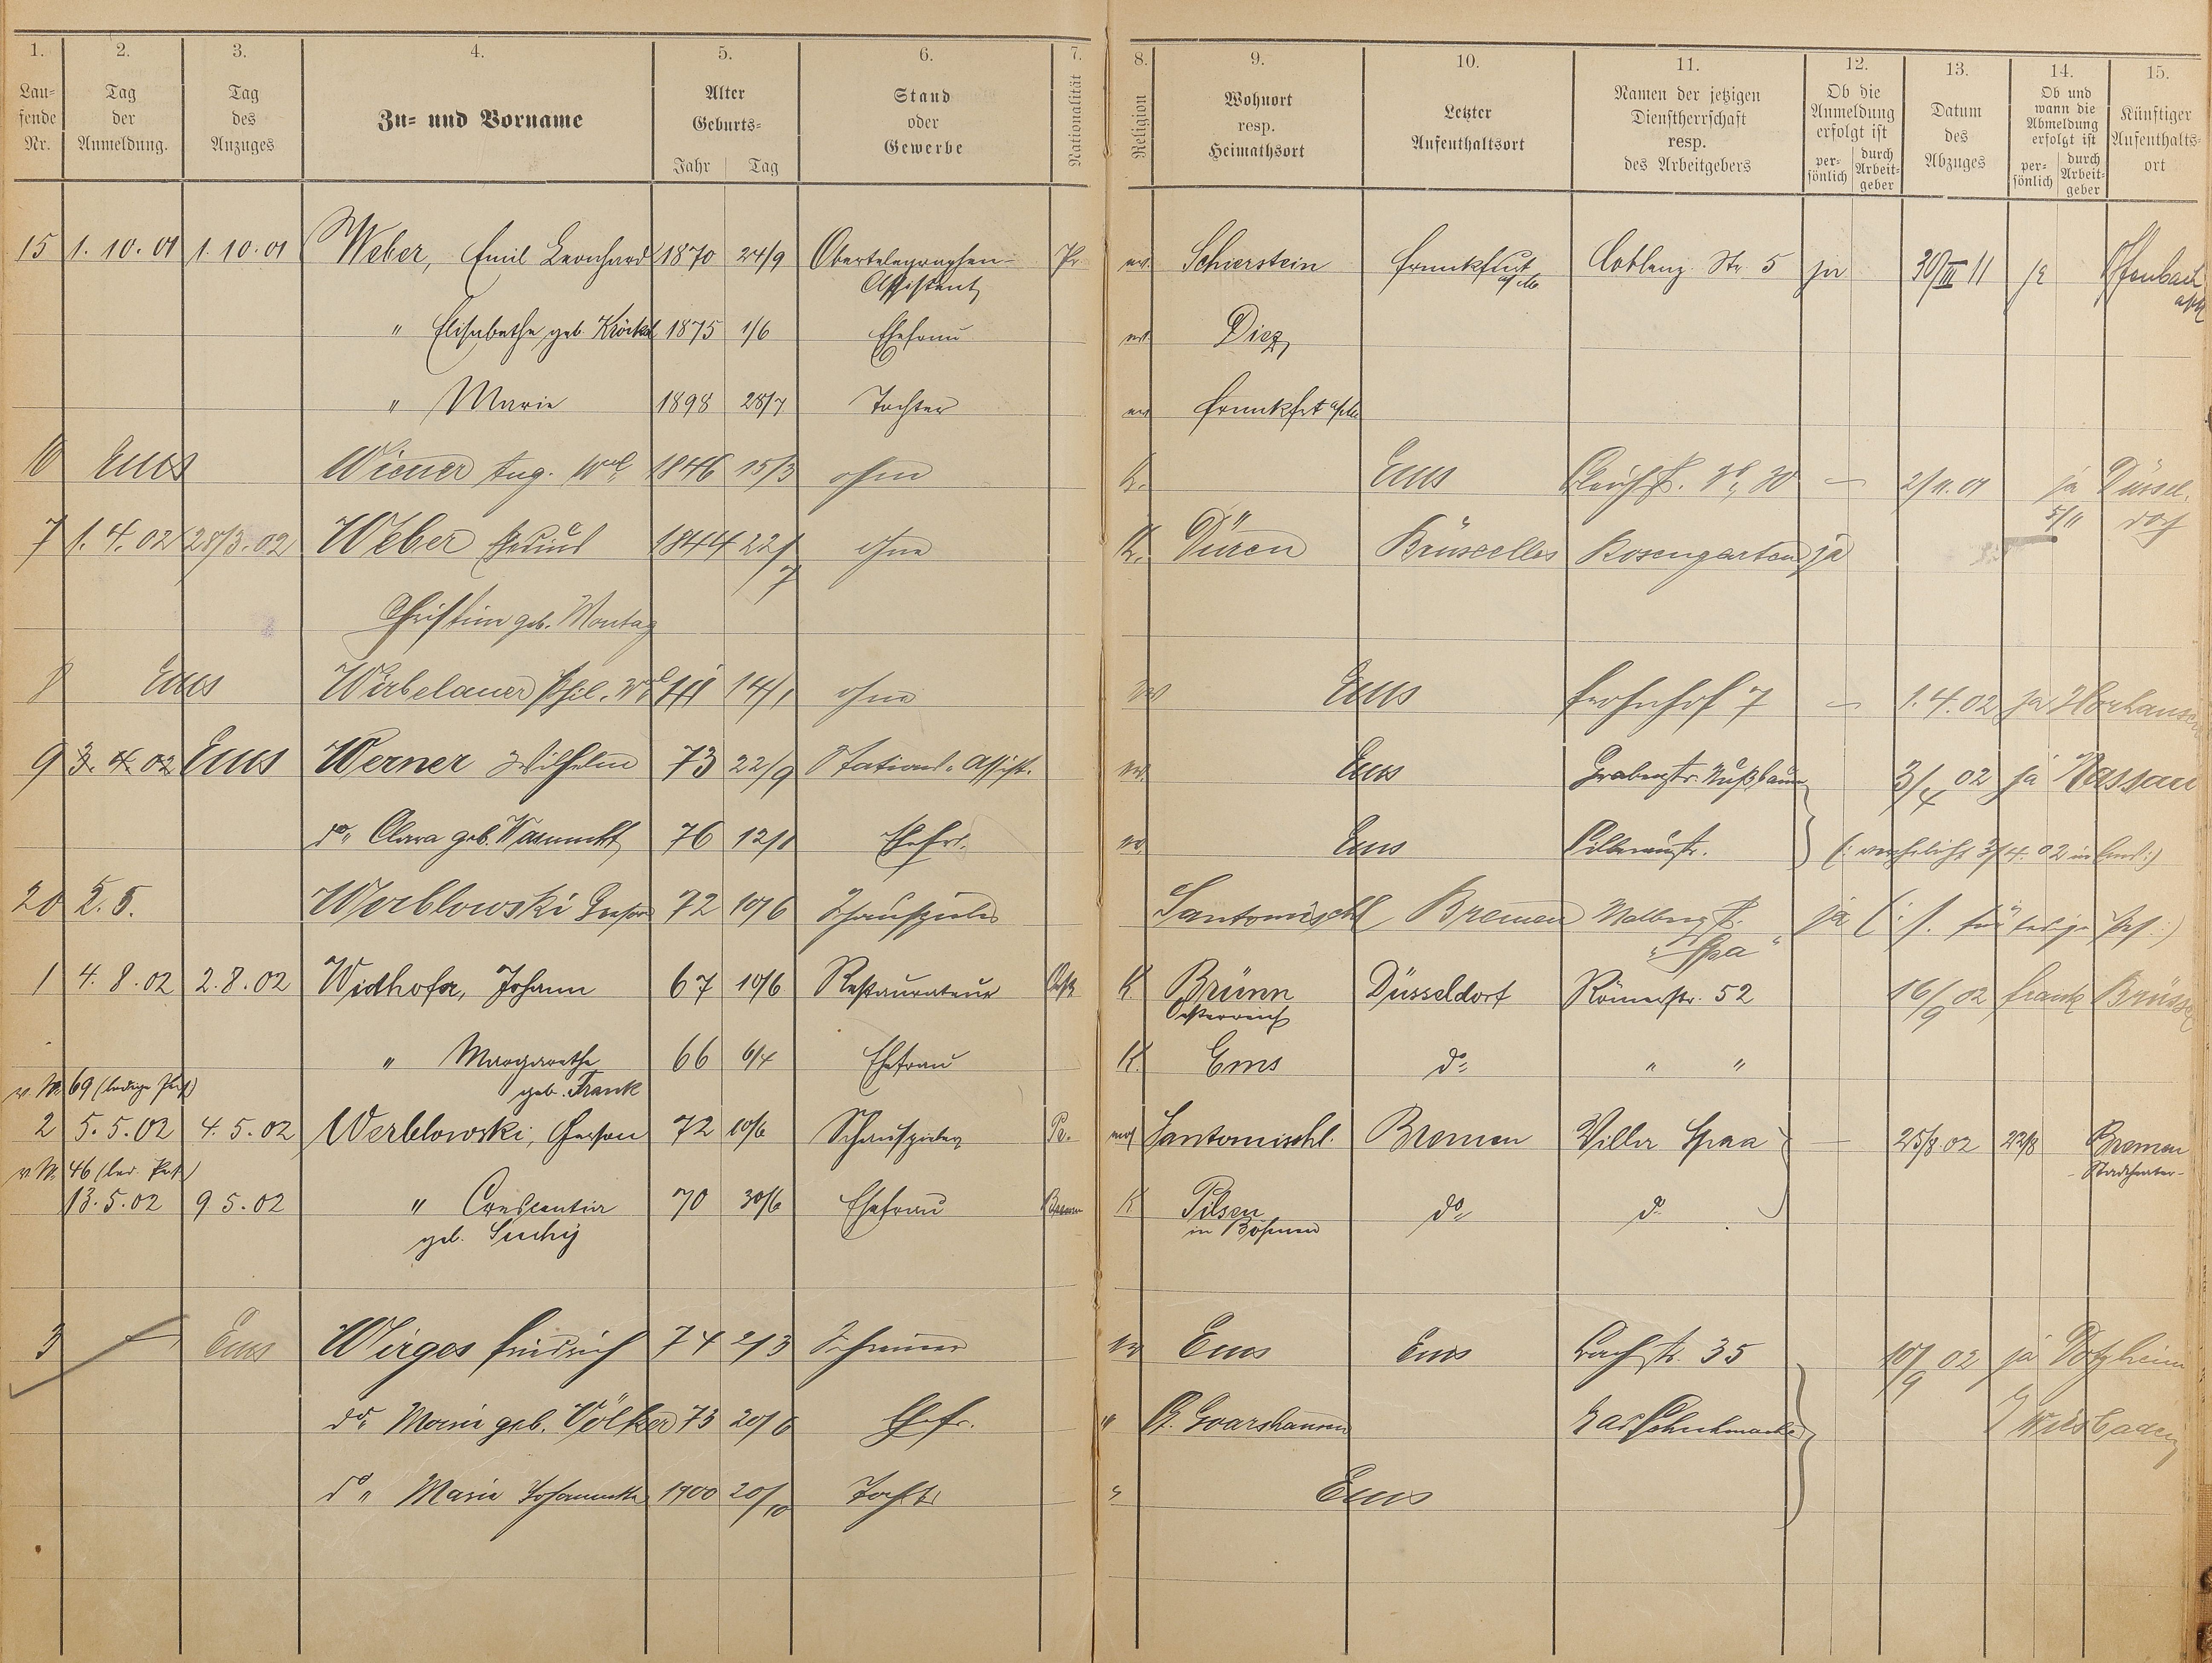 1. 2. 3. 4. 5. 6. 7. 8. 9. 10. 11. 12. 13. 14. 15.
Lau-
fende
Nr.
Tag
der
Anmeldung.
Tag
des
Anzuges
Zu- und Vorname
Alter
Geburts-
Jahr Tag
Stand
oder
Gewerbe
Nationalität
Religion
Wohnort
resp.
Heimathsort
Letzter
Aufenthaltsort
Namen der jetzigen
Dienstherrschaft
resp.
des Arbeitgebers
Ob die
Anmeldung
erfolgt ist
per-
sönlich
durch
Arbeit-
geber
Datum
des
Abzuges
Ob und
wann die
Abmeldung
erfolgt ist
per-
sönlich
durch
Arbeit-
geber
Künftiger
Aufenthalts-
ort
15 1. 10. 01 1. 10. 01 Weber, Emil Leonhard 1870 24/9 Obertelegraphen- Pr. ev. Schierstein Frankfurt Coblenz. Str. 5 ja 30/III 11 ja Offenbach
Assistent a/M a/M
" Elisabethe geb. 1875 1/6 Ehefrau ev. Diez
" Marie 1898 28/7 Tochter ev. Frankfrt a/M
16 Ems Wiener Aug. Wwe 1846 15/3 ohne K. Ems 30 — 2/11. 01 ja Düssel-
5/11 dorf
7 1. 4. 02 28/3. 02 Weber 1844 22/7 ohne K. Düren Brüxelles Rosengarten ja
Christine geb. Montag
8 Ems Wirbelauer Phil. Wwe 14/1 ohne ev Ems Frohnhof 7 — 1. 4. 02 ja Horhausen
9 3. 4. 02 Ems Werner Wilhelm 73 22/9 Stations-Assist. ev. Ems Grabenstr. Nußbaum 3/4 02 ja Nassau
do " Clara geb. 76 12/8 Ehefr. ev. Ems (: verehelicht 3/4. 02 in Ems :)
20 5. 5. Werblowski Gerson 72 10/6 Schauspieler Santomischl Bremen Malberg ja (: s. für ledige Pers :)
"Spa"
1 4. 8. 02 2. 8. 02 Widhofer, Johann 67 10/6 Restaurateur K. Brünn Düsseldorf Römerstr. 52 16/9 02 Brüssel
Oesterreich
" Margarethe 66 6/4 Ehefrau K. Ems do " "
geb. Frank
v. Nr. 69 (ledige Pers)
2 5. 5. 02 4. 5. 02 Werblowski, Gerson 72 10/6 Schauspieler Pr. mos Santomischl. Bremen Villa Spaa — 25/8 02 22/8 Bremen
- Stadttheater -
v. Nr. 46 (led. Pers.)
13. 5. 02 9 5. 02 " Crescentia 70 30/6 Ehefrau Bremen K Pilsen do do
geb. Suchy in Böhmen
3 Ems Wirges Friedrich 74 2/3 Schreiner ev Ems Ems Bachstr. 35 10/9 02 ja Dotzheim
do " Maria geb. Völker 73 20/8 Ehefr. " St. Goarshausen Wiesbaden
do " Maria Johannette 1900 20/10 Tocht " Ems